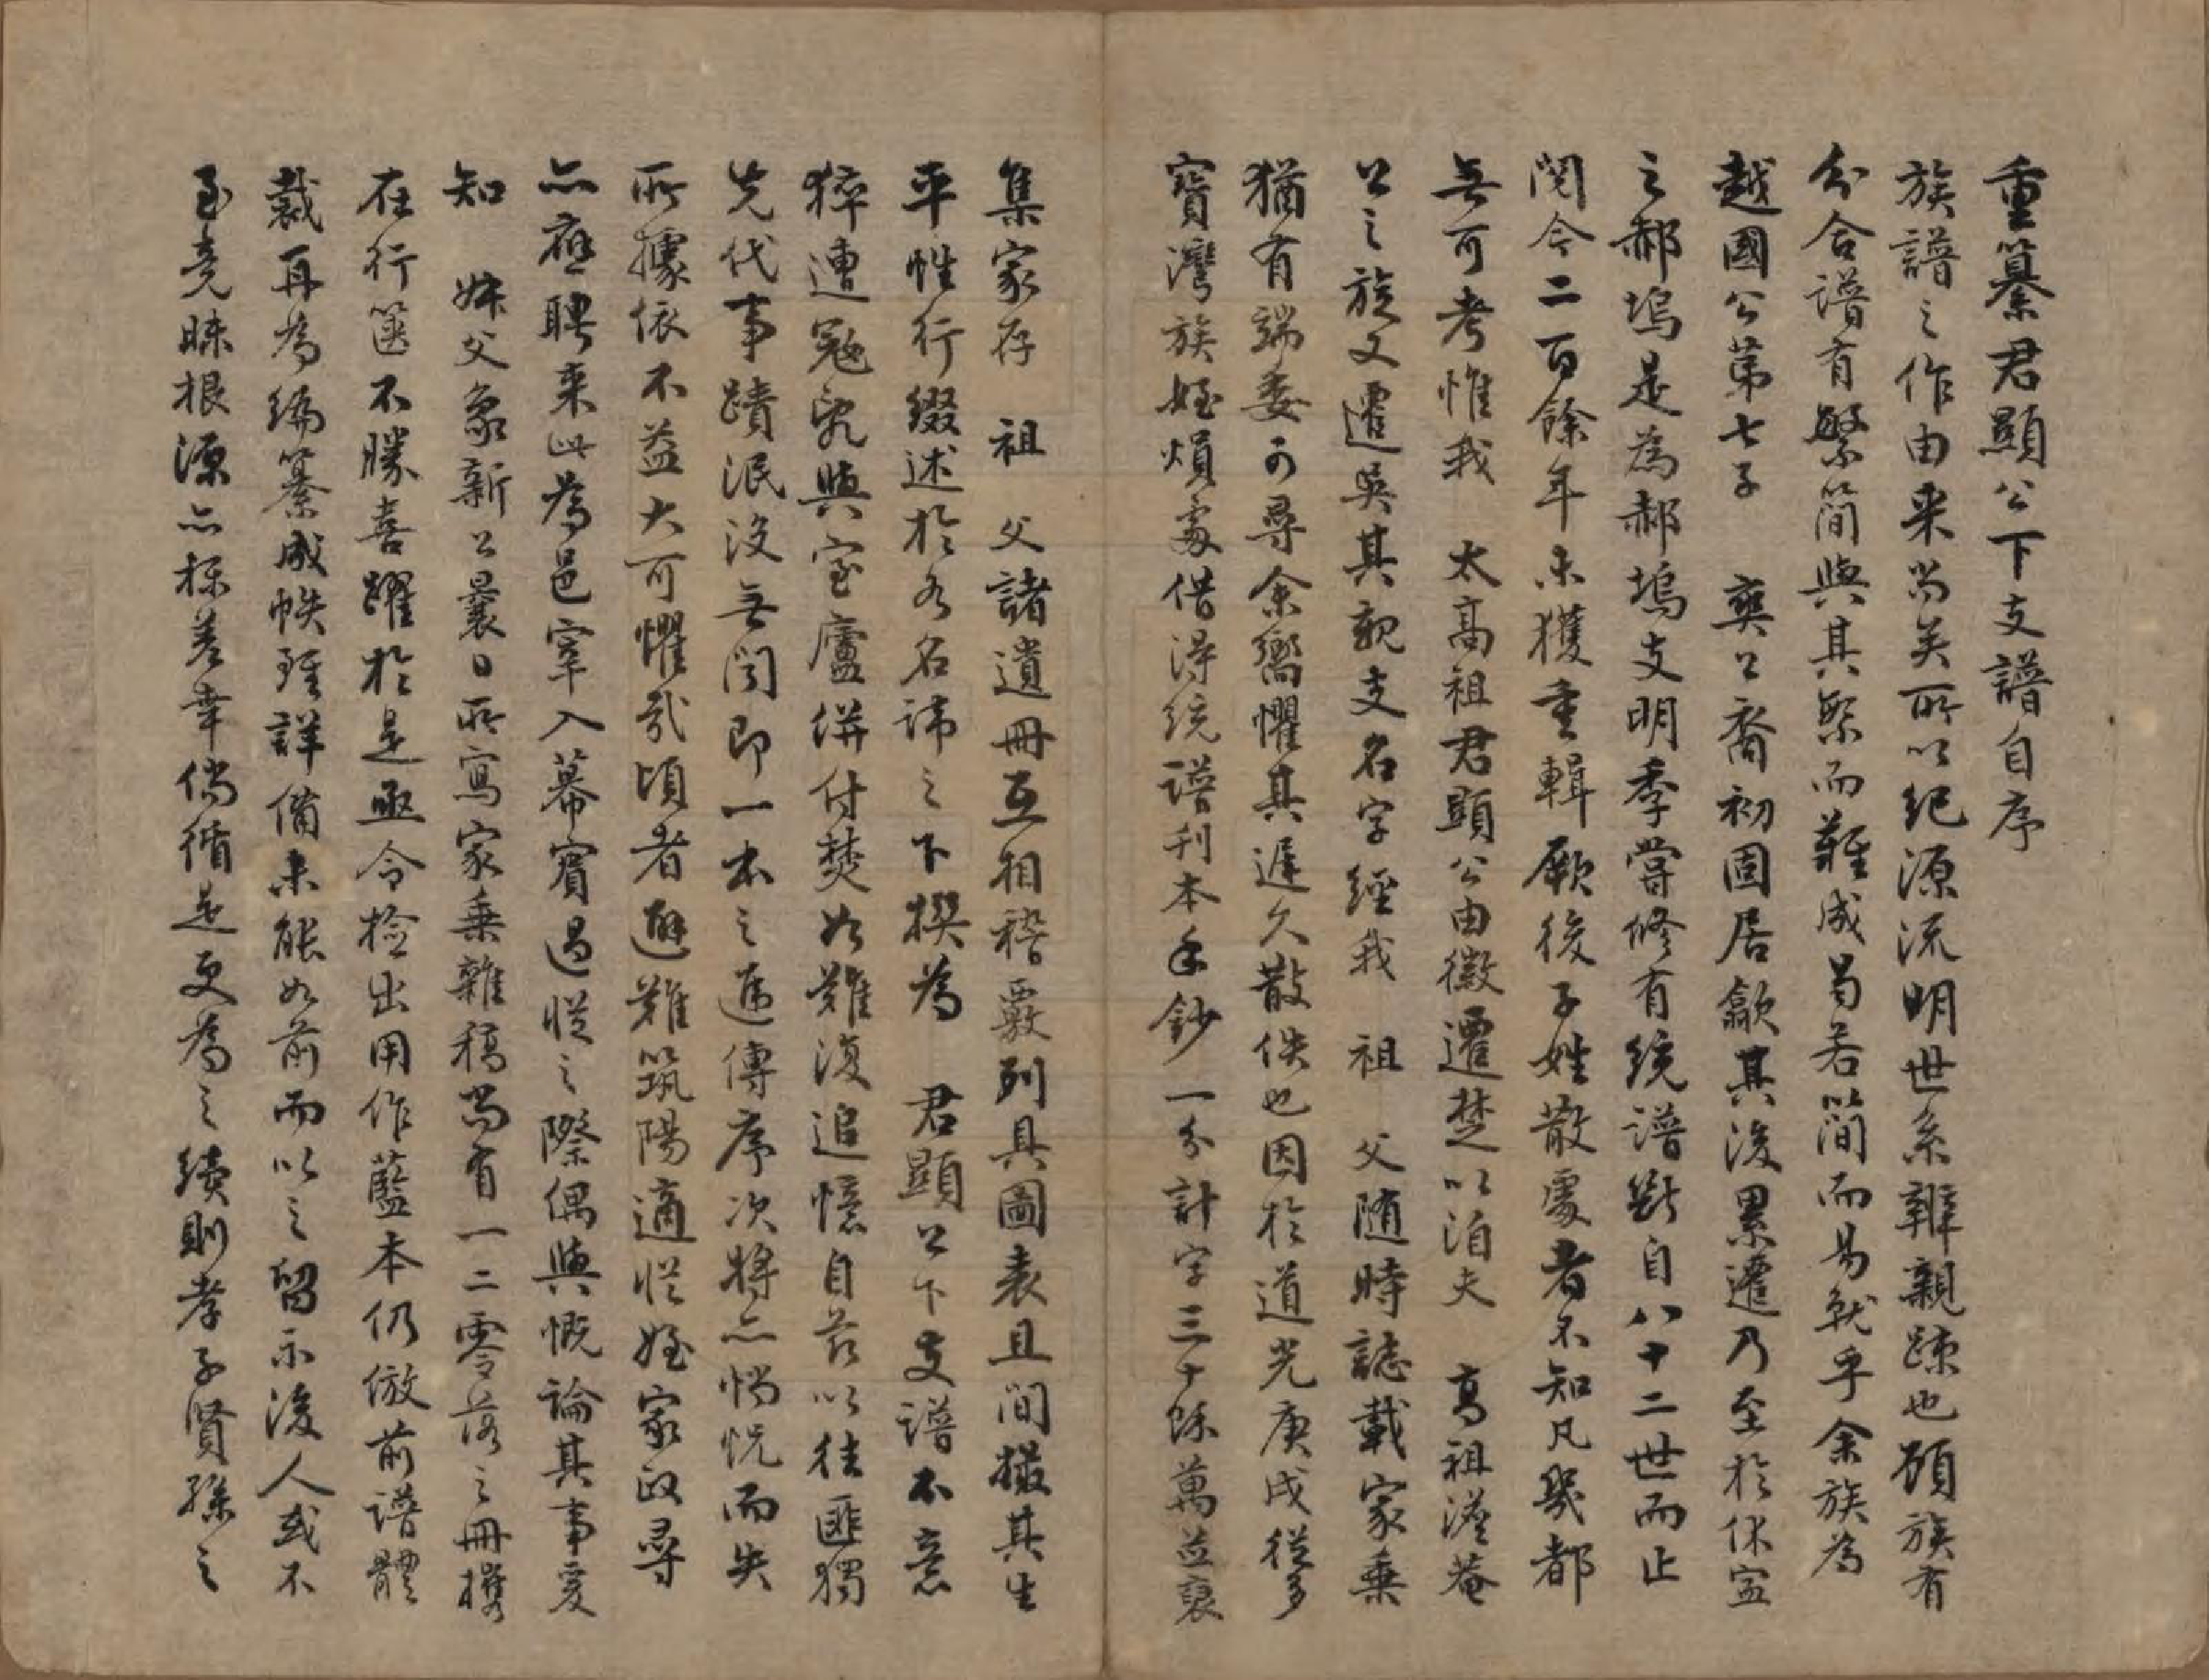 重纂君顯公下支譜自序
族譜之作由来尚矣所以纪源流明世系辨親疎也顧族有
分合譜有繁簡與其繁而難成曷若簡而易就乎余族為
越國公第七子　爽公裔初固居歙其後累遷乃至於休寍
之郝塢是為郝塢支明季嘗修有统譜斷自八十二世而止
閱今二百餘年未獲重輯厥後子姓散處者不知凡幾都
無可考惟我　太高祖君顯公由徽遷楚以洎夫　高祖瀅菴
公之族又遷吳其親支名字經我　祖　父随時誌載家乗
猶有端委可尋余嚮懼其遲久散佚也因於道光庚戌從
寳灣族姪煩處借得统譜刊本手鈔一分計字三十餘萬並裒
集家存　祖　父諸遺冊互相稽覈列具圖表且間撮其生
平性行缀述於各名諱之下撰為　君顯公下支譜不意
猝遭寇亂與室廬併付焚如難復追憶自兹以往匪獨
先代事蹟泯没無闻即一本之遞傳序次將亦惝怳而失
所據依不益大可懼哉頃者避難筑陽適從姪家政尋
亦應聘来此為邑宰入幕賓過從之際偶與慨論其事爰
知　妹父象新公曩日所寫家乗雜稿尚有一二零落之冊攜
在行篋不勝喜躍於是亟令檢出用作藍本仍倣前譜體
裁再為编纂成帙雖詳備未能如前而以之留示後人或不
至竟昧根源亦極差幸倘循是更為之續則孝子賢孫之